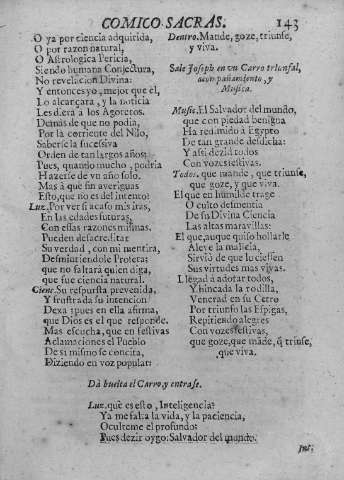 COMICO SACRAS. 143
O ya por ciencia adquirida,
O por razon natural,
O Astrologica Pericia,
Siendo humana Conjectura,
No revelacion Divina:
Y entonces yo, mejor que èl,
Lo alcançara, y la noticia
Les diera à los Agoreros.
Demàs de que no podia,
Por la corriente del Nilo,
Saberse la sucessiva
Orden de tan largos años;
Pues, quando mucho, podria
Hazerse de vn año solo.
Mas à què fin averiguas
Esto, que no es del intento?
Luz. Por ver si acaso mis iras,
En las edades futuras,
Con essas razones mismas,
Pueden desacreditar
Su verdad, con mi mentira,
Desmintiendole Profeta:
que no faltarà quien diga,
que fue ciencia natural.
Cienc. Su respuesta prevenida,
Y frustrada su intencion
Dexa: pues en ella afirma,
que Dios es el que responde.
Mas escucha, que en festivas
Aclamaciones el Pueblo
De si mismo se concita,
Diziendo en voz popular:
Dentro. Mande, goze, triunfe,
y viva.
Sale Joseph en vn Carro triunfal,
acompañamiento, y
Musica.
Music. El Salvador del mundo,
que con piedad benigna
Ha redimido à Egypto
De tan grande desdicha:
Y assi dezid todos
Con vozes festivas.
Todos. que mande, que triunfe,
que goze, y que viva.
El que en humilde trage
Oculto desmentia
De su Divina Ciencia
Las altas maravillas:
El que, aunque quiso hollarle
Aleve la malicia,
Sirviò de que luciessen
Sus virtudes mas vivas.
Llegad à adotar todos,
Y hincada la rodilla,
Venerad en su Cetro
Por triunfo las Espigas,
Repitiendo alegres
Con vozes festivas,
que goze, que mãde, q̃ triunfe,
que viva.
Dà buelta el Carro, y entrase.
Luz. què es esto, Inteligencia?
Ya me falta la vida, y la paciencia,
Oculteme el profundo:
Pues dezir oygo: Salvador del mundo.